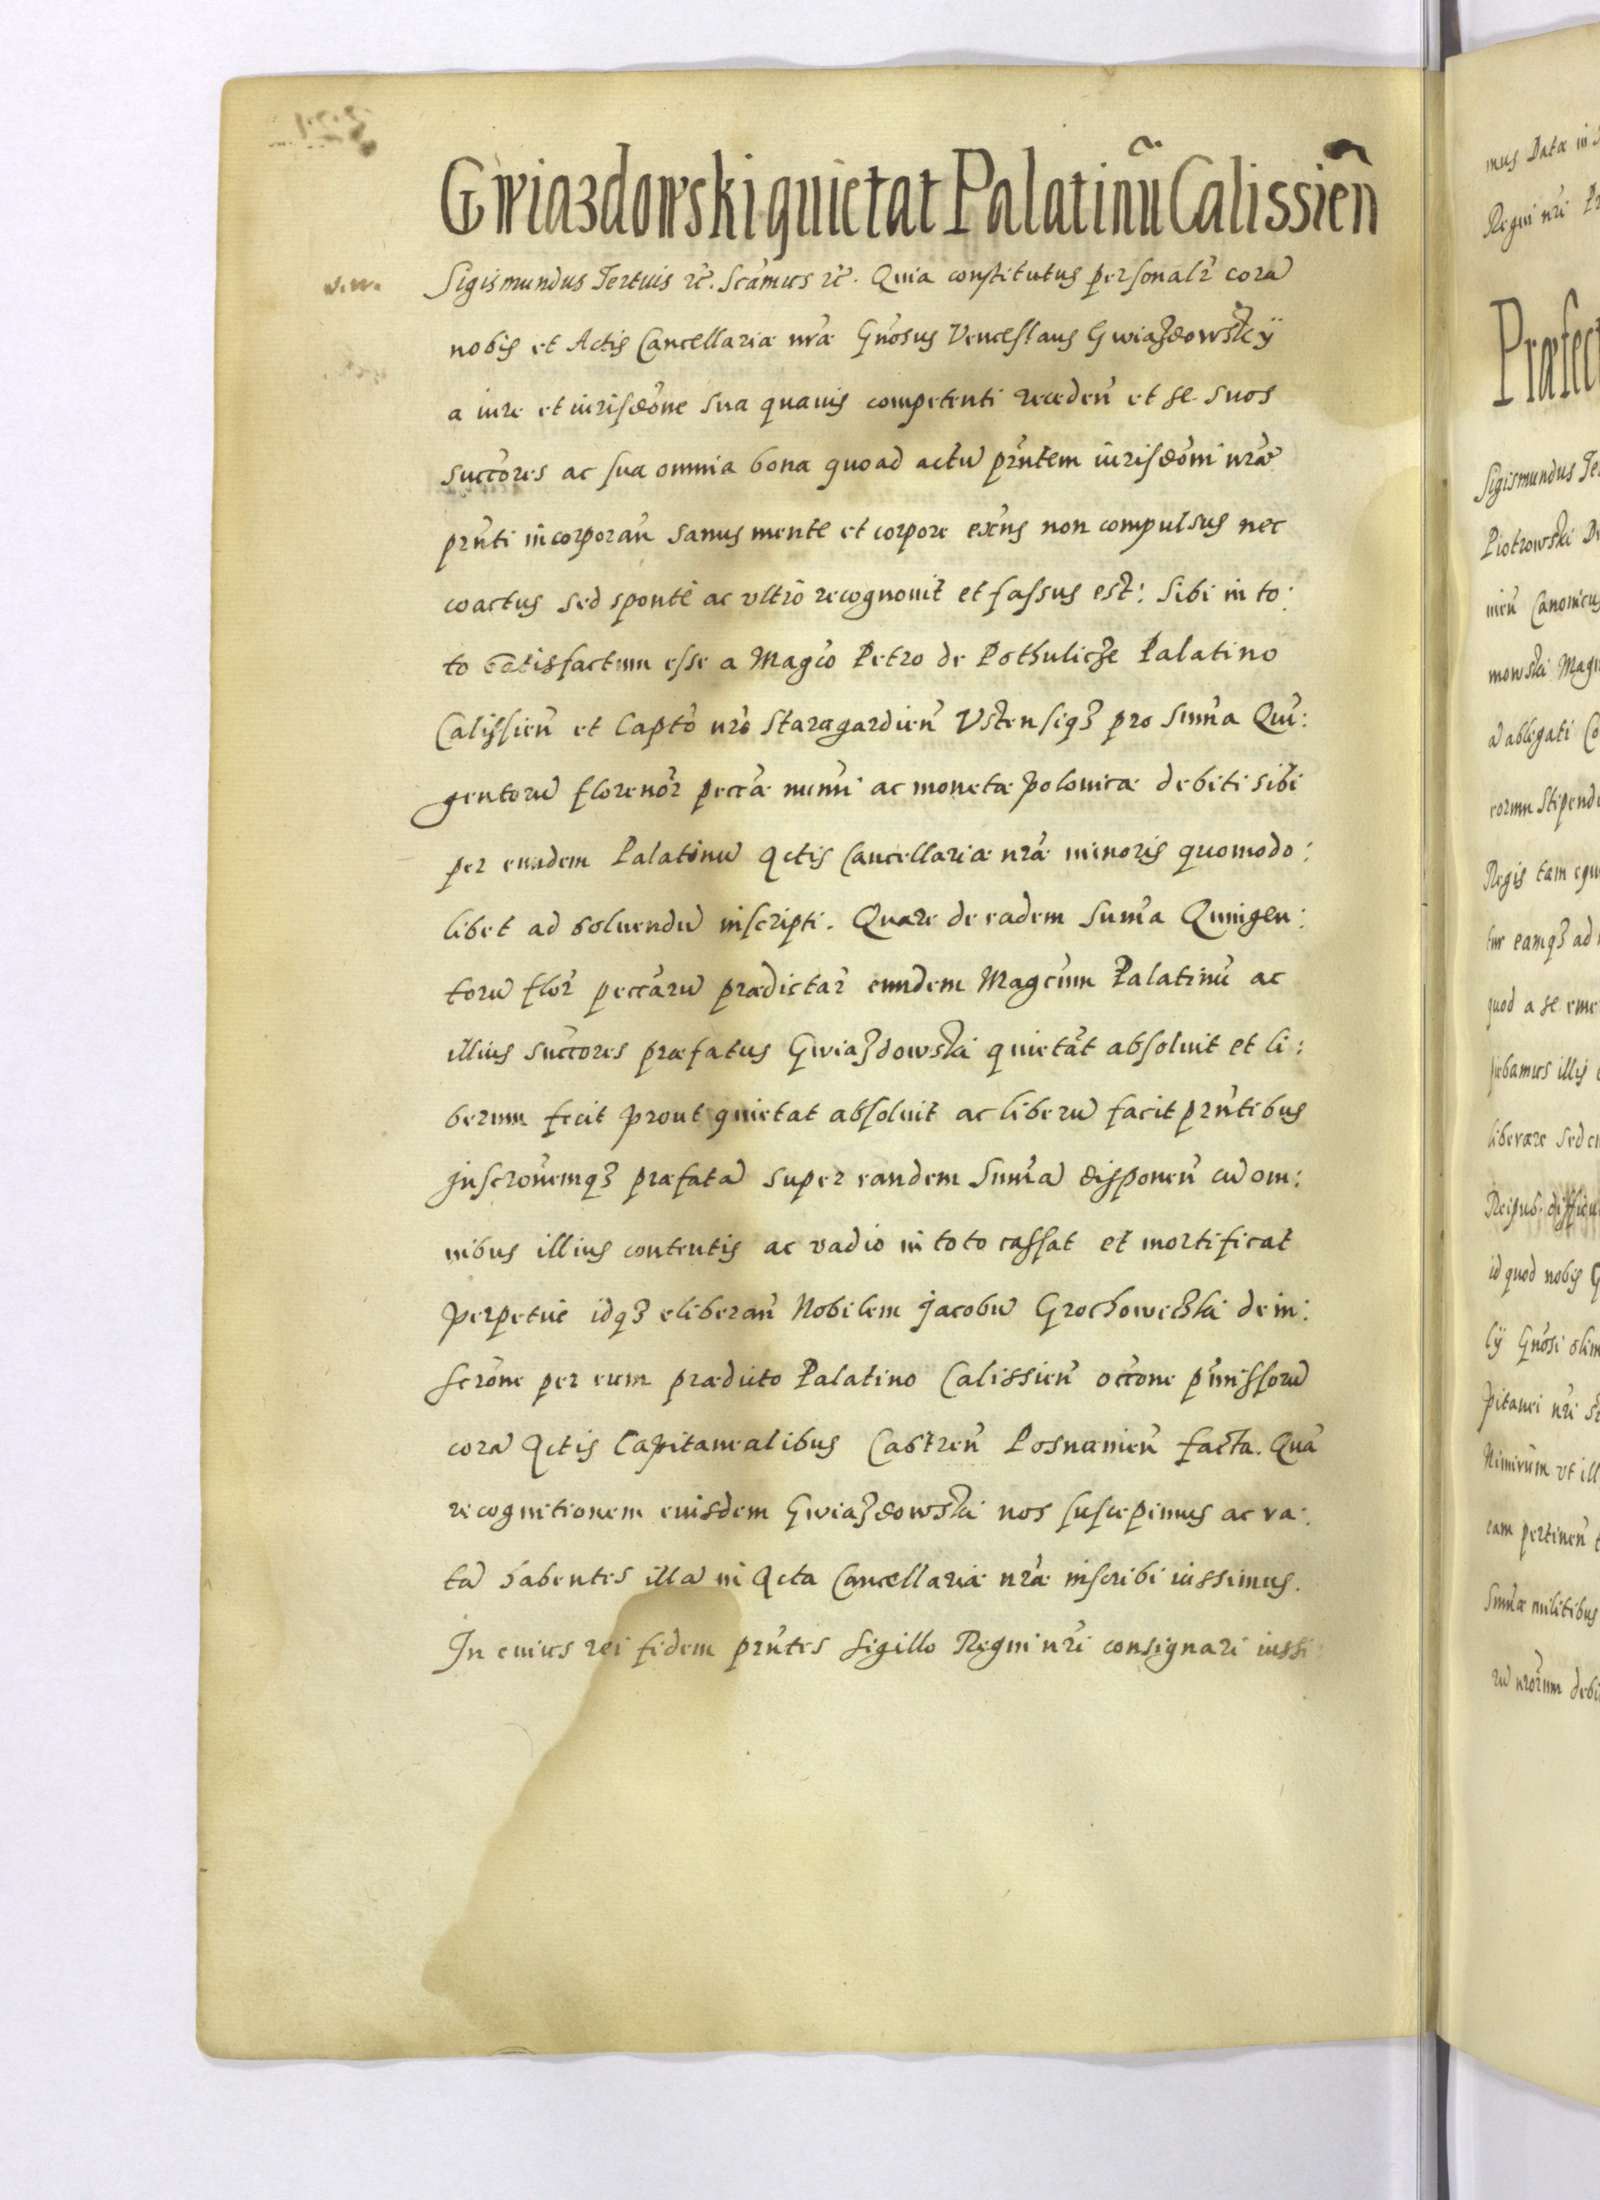 Gwiazdowski quietat Palatinũ Calissieñ
Sigismundus Tertius rc̃. Scãmus rc̃. Quia constitutus personalr̃ corã
nobis et Actis Cancellariæ nræ̃ Gñosus Venceslaus Gwiazdowskÿ
a iure et iurisdõne sua quauis competenti recedeñ et se suos
succõres ac sua omnia bona quoad actũ prñtem iurisdõni nræ̃
prñti incorporañ sanus mente et corpore exñs non compulsus nec
coactus sed sponte ac vltro recognouit et fassus est: Sibi in to:
to satisfactum esse a Magcõ Petro de Pothulicze Palatino
Calissieñ et Captõ nrõ Staragardieñ Vstensiqz pro Sum̃a Quĩ:
gentorũ florenor̃ peccæ̃ num̃i ac monetæ polonicæ debiti sibi
per eundem Palatinũ Actis Cancellariæ nræ̃ minoris quomodo:
libet ad soluendũ inscripti. Quare de eadem Sum̃a Quingen:
torũ flor̃ peccãrũ prædictar̃ eundem Magcũm Palatinũ ac
illius succõres præfatus Gwiazdowski quietat̃ absoluit et li:
berum fecit prout quietat absoluit ac liberũ facit prñtibus
Inscrõnemqz præfatã super eandem Sum̃ã disponeñ cũ om:
nibus illius contentis ac vadio in toto cassat et mortificat
perpetue idqz eliberañ Nobilem Jacobũ Grochowiecki de in:
scrõne per eum prædicto Palatino Calissieñ occõne pr̃missorũ
corã Actis Capitanealibus Castreñ Posnanieñ facta. Quã
recognitionem eiusdem Gwiazdowski nos suscepimus ac ra:
tã habentes illã in Acta Cancellariæ nræ̃ inscribi iussimus.
In cuius rei fidem prñtes sigillo Regni nrĩ consignari iussi
mus Data in
Regni nrĩ
Præfect
Sigismundus
Piotrowski
nieñ Canonicus
mowski
ablegati
eorum Stipend
Regis tam
tur eamqz ad
quod a se
illis
liberare sed
Reipub:
id quod nobis
lÿ Gñosi olim
pitanei nrĩ
Nimirum vt ill
eam pertineñ
Sum̃æ militibus
rũ nrõrum